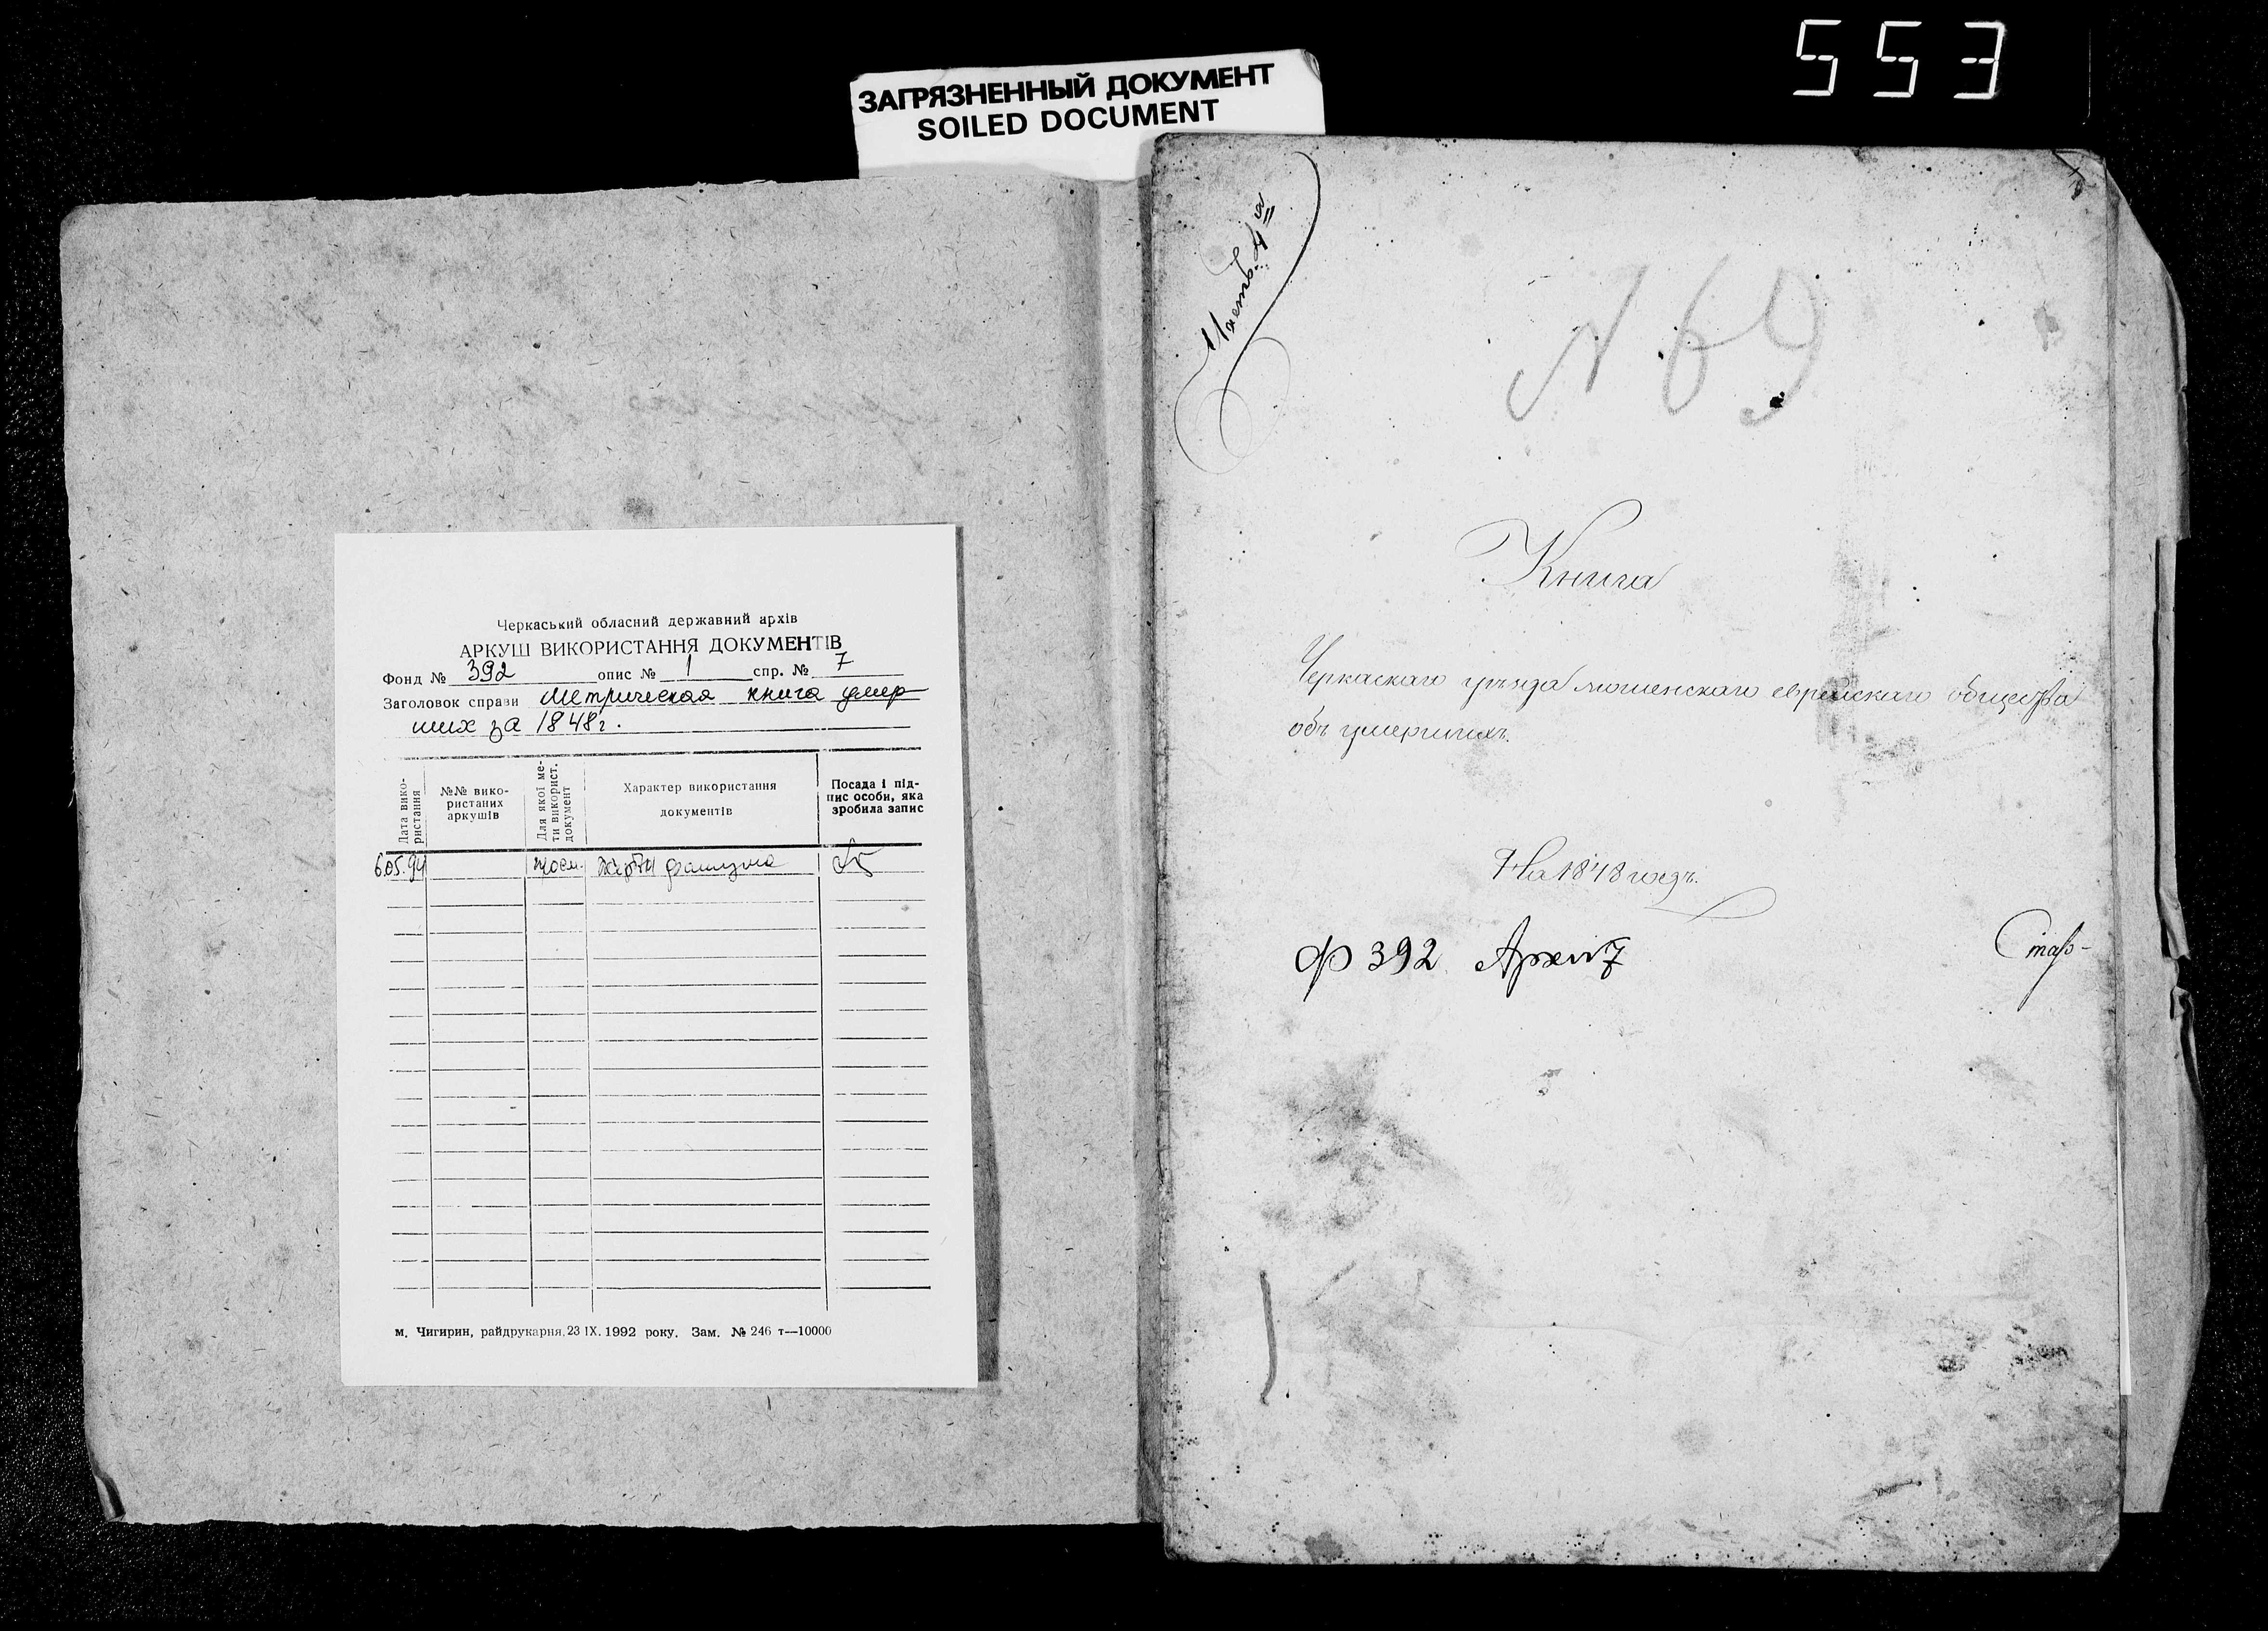 553
ЗАГРЯЗНЕННЫЙ ДОКУМЕНТ
SOILED DOCUMENT
Черкаський обласний державний архів
АРКУШ ВИКОРИСТАННЯ ДОКУМЕНТІВ
Фонд № 392 опис № 1 спр. № 7
Заголовок справи Метрическая книга умер
ших за 1848г.
Дата вико-
ристання
№№ вико-
ристаних
аркушів
Для якої ме-
ти використ.
документ
Характер використання
документів
Посада і під-
пис особи, яка
зробила запис
6.05.94
м. Чигирин, райдрукарня, 23 IX. 1992 року. Зам. № 246 т—10000
N 69
Книга
Черкаскаго уѣзда мошенскаго еврейскаго общества
объ умершихъ.
На 1848 годъ.
Ф 392 Арх № 7